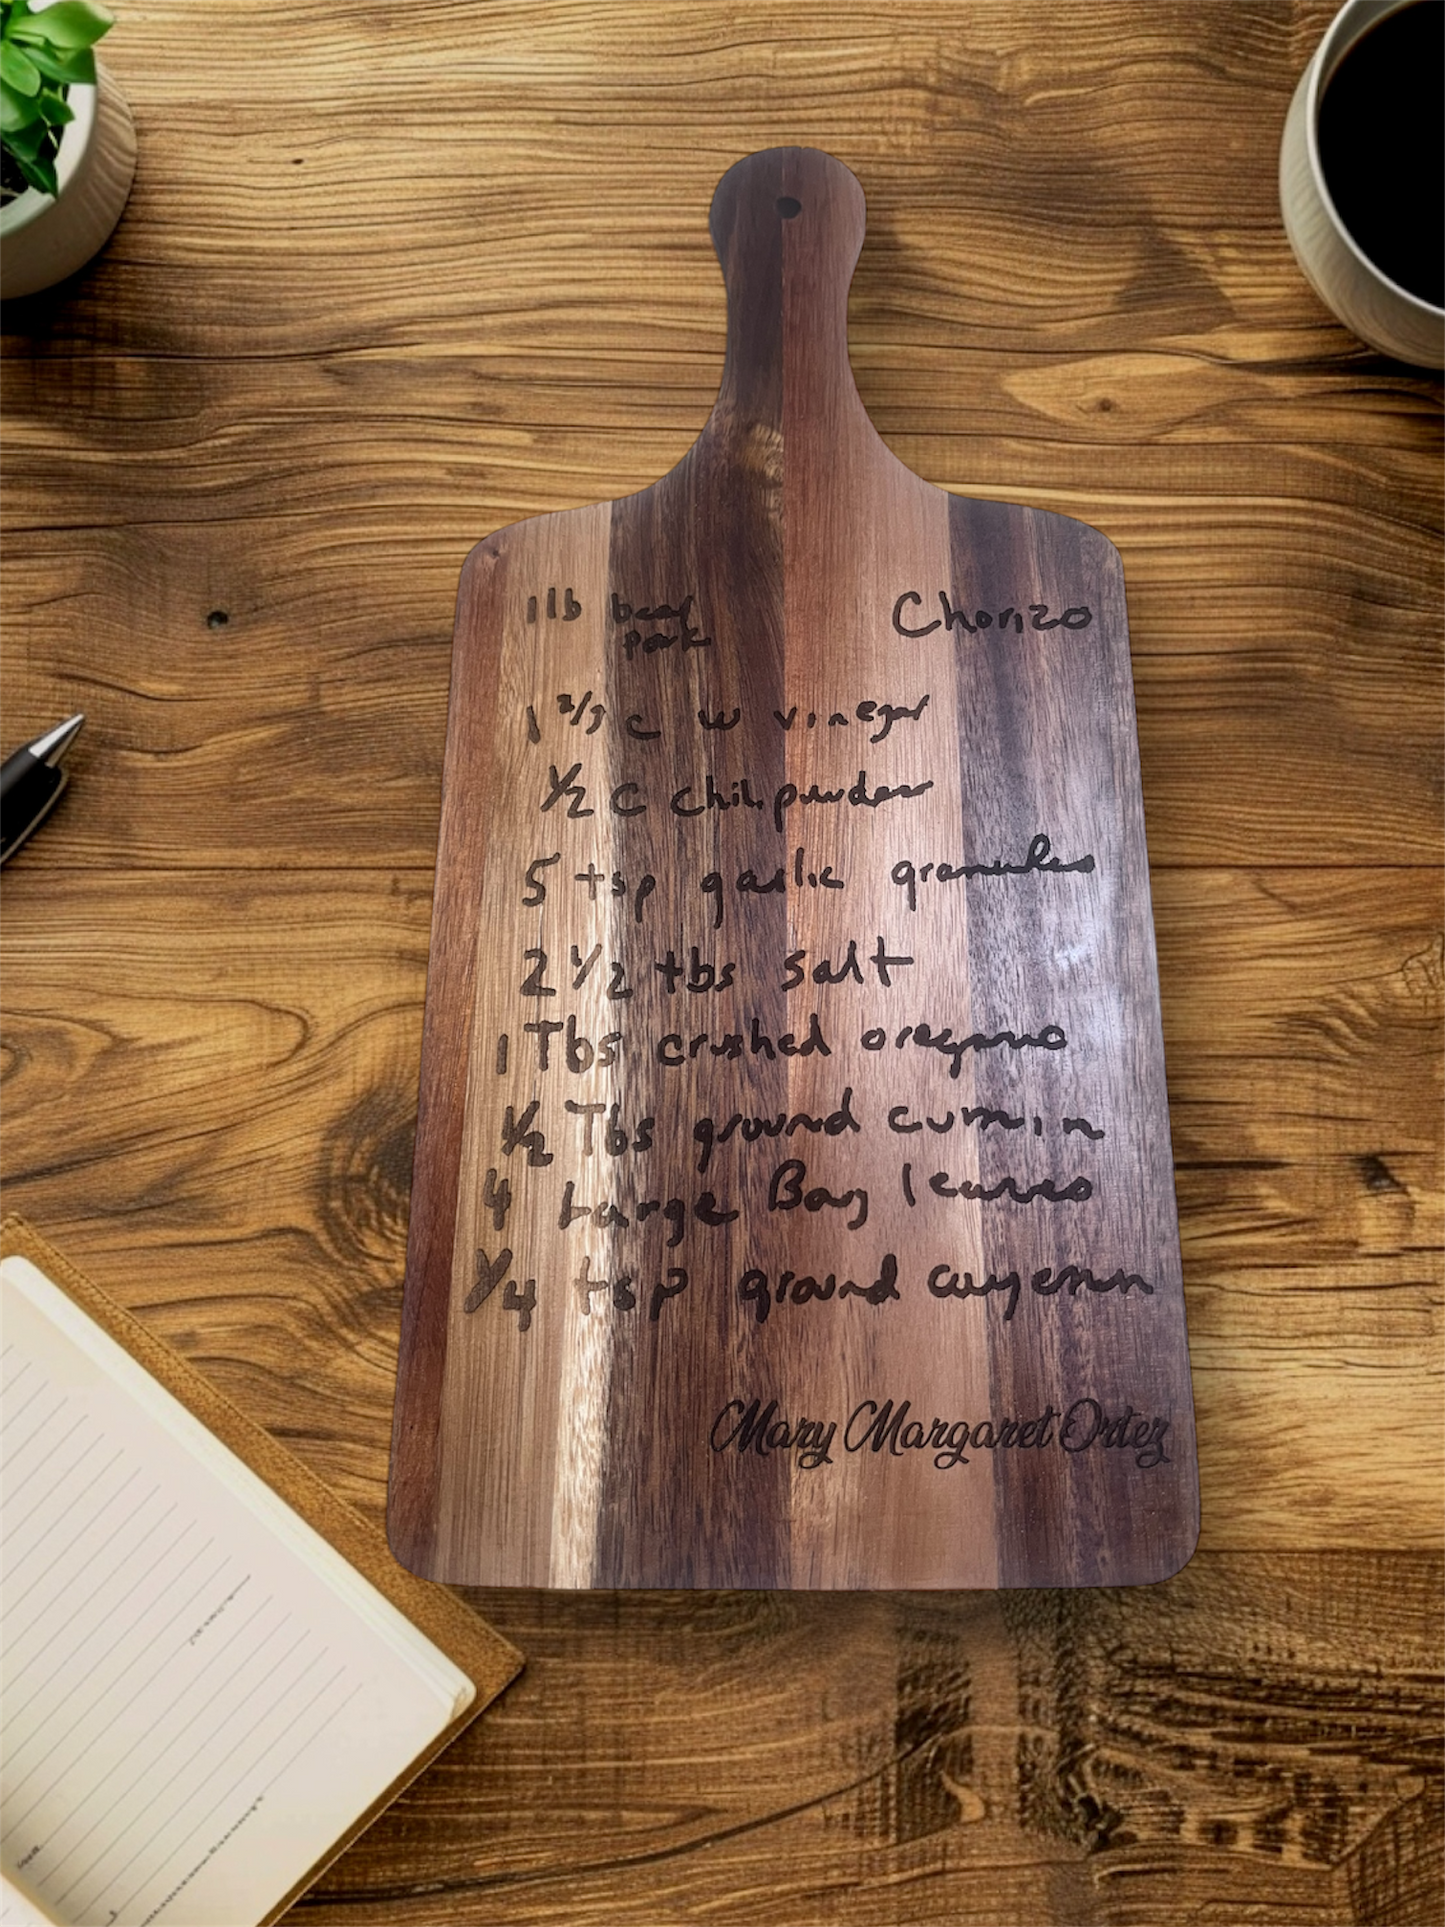 1 lb beef Chorizo
pork
1 2/3 c w vinegar
1/2 c chili powder
5 tsp garlic granules
2 1/2 tbs salt
1 Tbs crushed oregano
1/2 Tbs ground cumin
4 Large Bay leaves
1/4 tsp ground cayenne
Mary Margaret Ortez